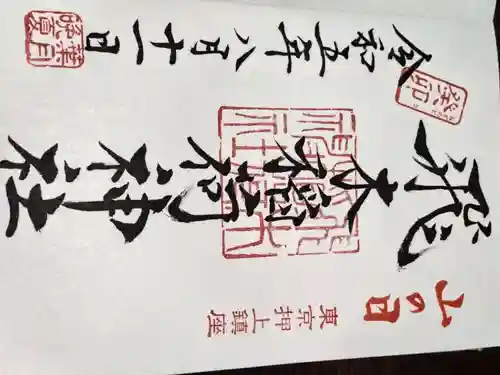 山の日
東京押上鎮座
飛木稲荷神社
令和五年八月十一日
登印
葉月